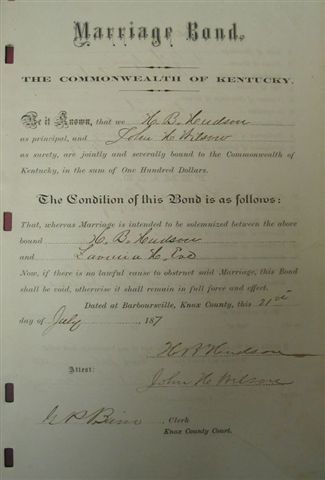 Marriage Bond.
THE COMMONWEALTH OF KENTUCKY.
Be it Known, that we H. B. Hudson
as principal, and John H. Wilson
as surety, are jointly and severally bound to the Commonwealth of
Kentucky, in the sum of One Hundred Dollars.
The Condition of this Bond is as follows:
That, whereas Marriage is intended to be solemnized between the above
bound H. B. Hudson
and Lavinia
Now, if there is no lawful cause to obstruct said Marriage, this Bond
shall be void, otherwise it shall remain in full force and effect.
Dated at Barboursville, Knox County, this 21st
day of July 187
H B Hudson
Attest:
John H. Wilson
Clerk
Knox County Court.